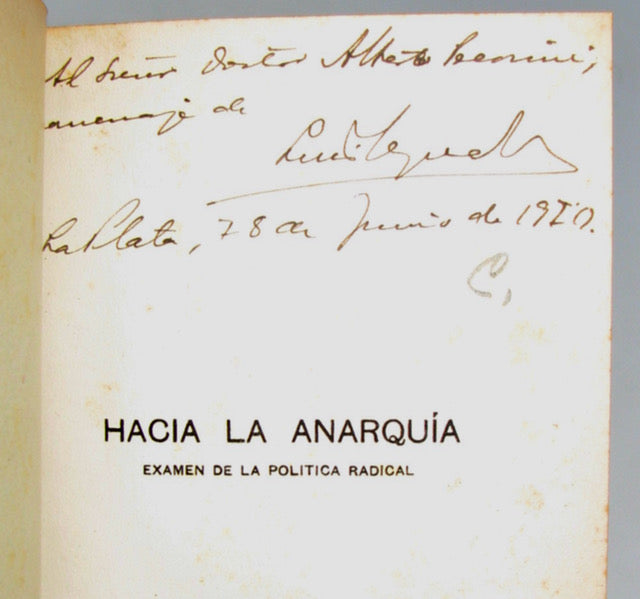 Al Señor Doctor Alberto
homenaje de
Luis
La Plata, 28 de Junio de 1920.
C.
HACIA LA ANARQUÍA
EXAMEN DE LA POLITICA RADICAL